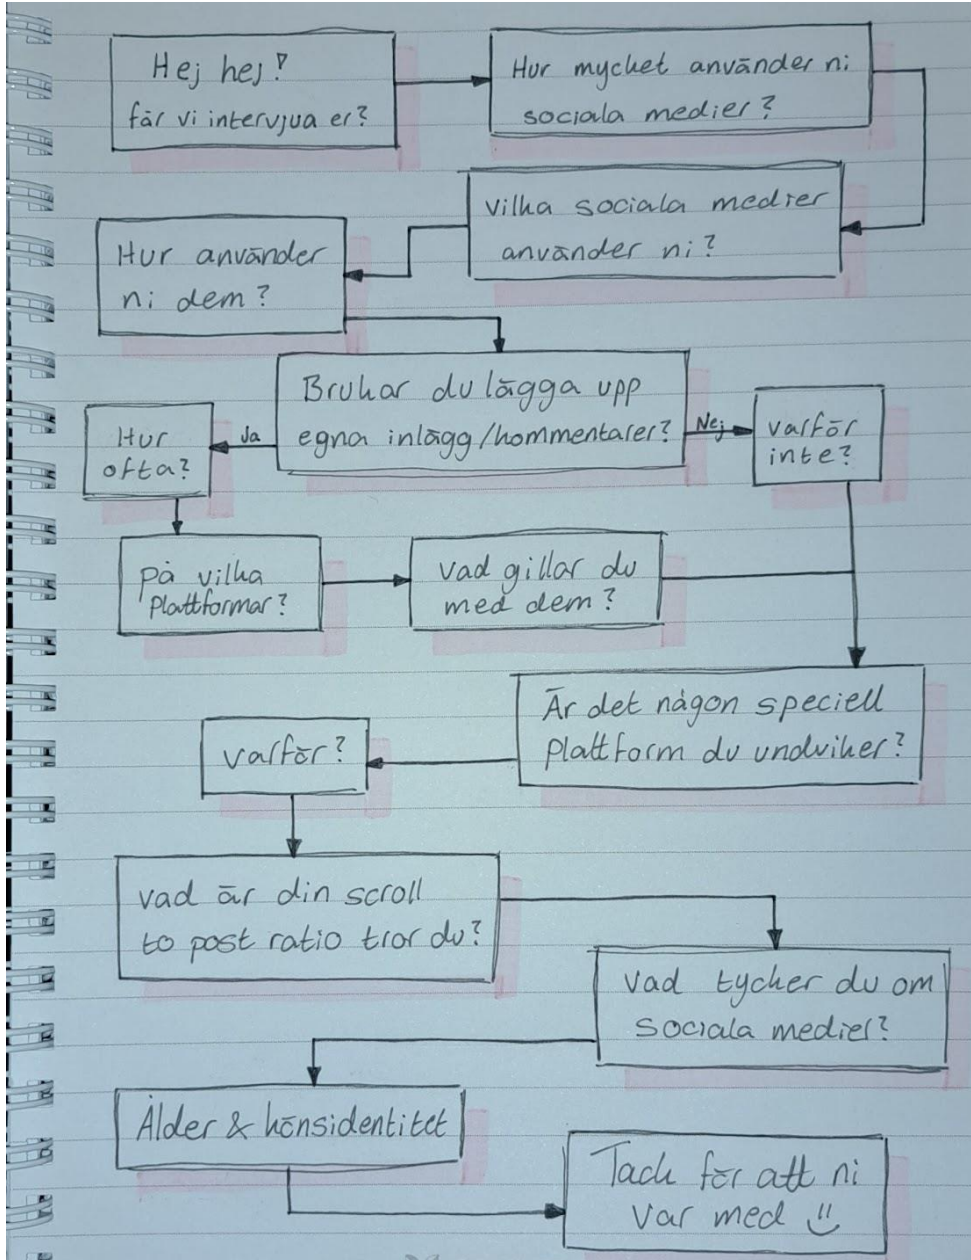 Hej hej!
får vi intervjua er?
Hur mycket använder ni
sociala medier?
vilka sociala medier
använder ni?
Hur använder
ni dem?
Brukar du lägga upp
egna inlägg/kommentarer?
Ja
Nej
Hur
ofta?
varför
inte?
på vilka
plattformar?
vad gillar du
med dem?
Är det någon speciell
plattform du undviker?
varför?
vad är din scroll
to post ratio tror du?
Vad tycker du om
sociala medier?
Ålder & könsidentitet
Tack för att ni
var med